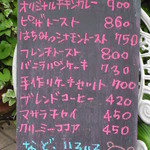 オリジナルチキンカレー 900
ピザトースト 860
はちみつシナモントースト 750
フレンチトースト 800
バニラパンケーキ 730
手作りケーキセット 700
ブレンドコーヒー 420
マサラチャイ 450
クリーミーココア 450
など、いろいろ